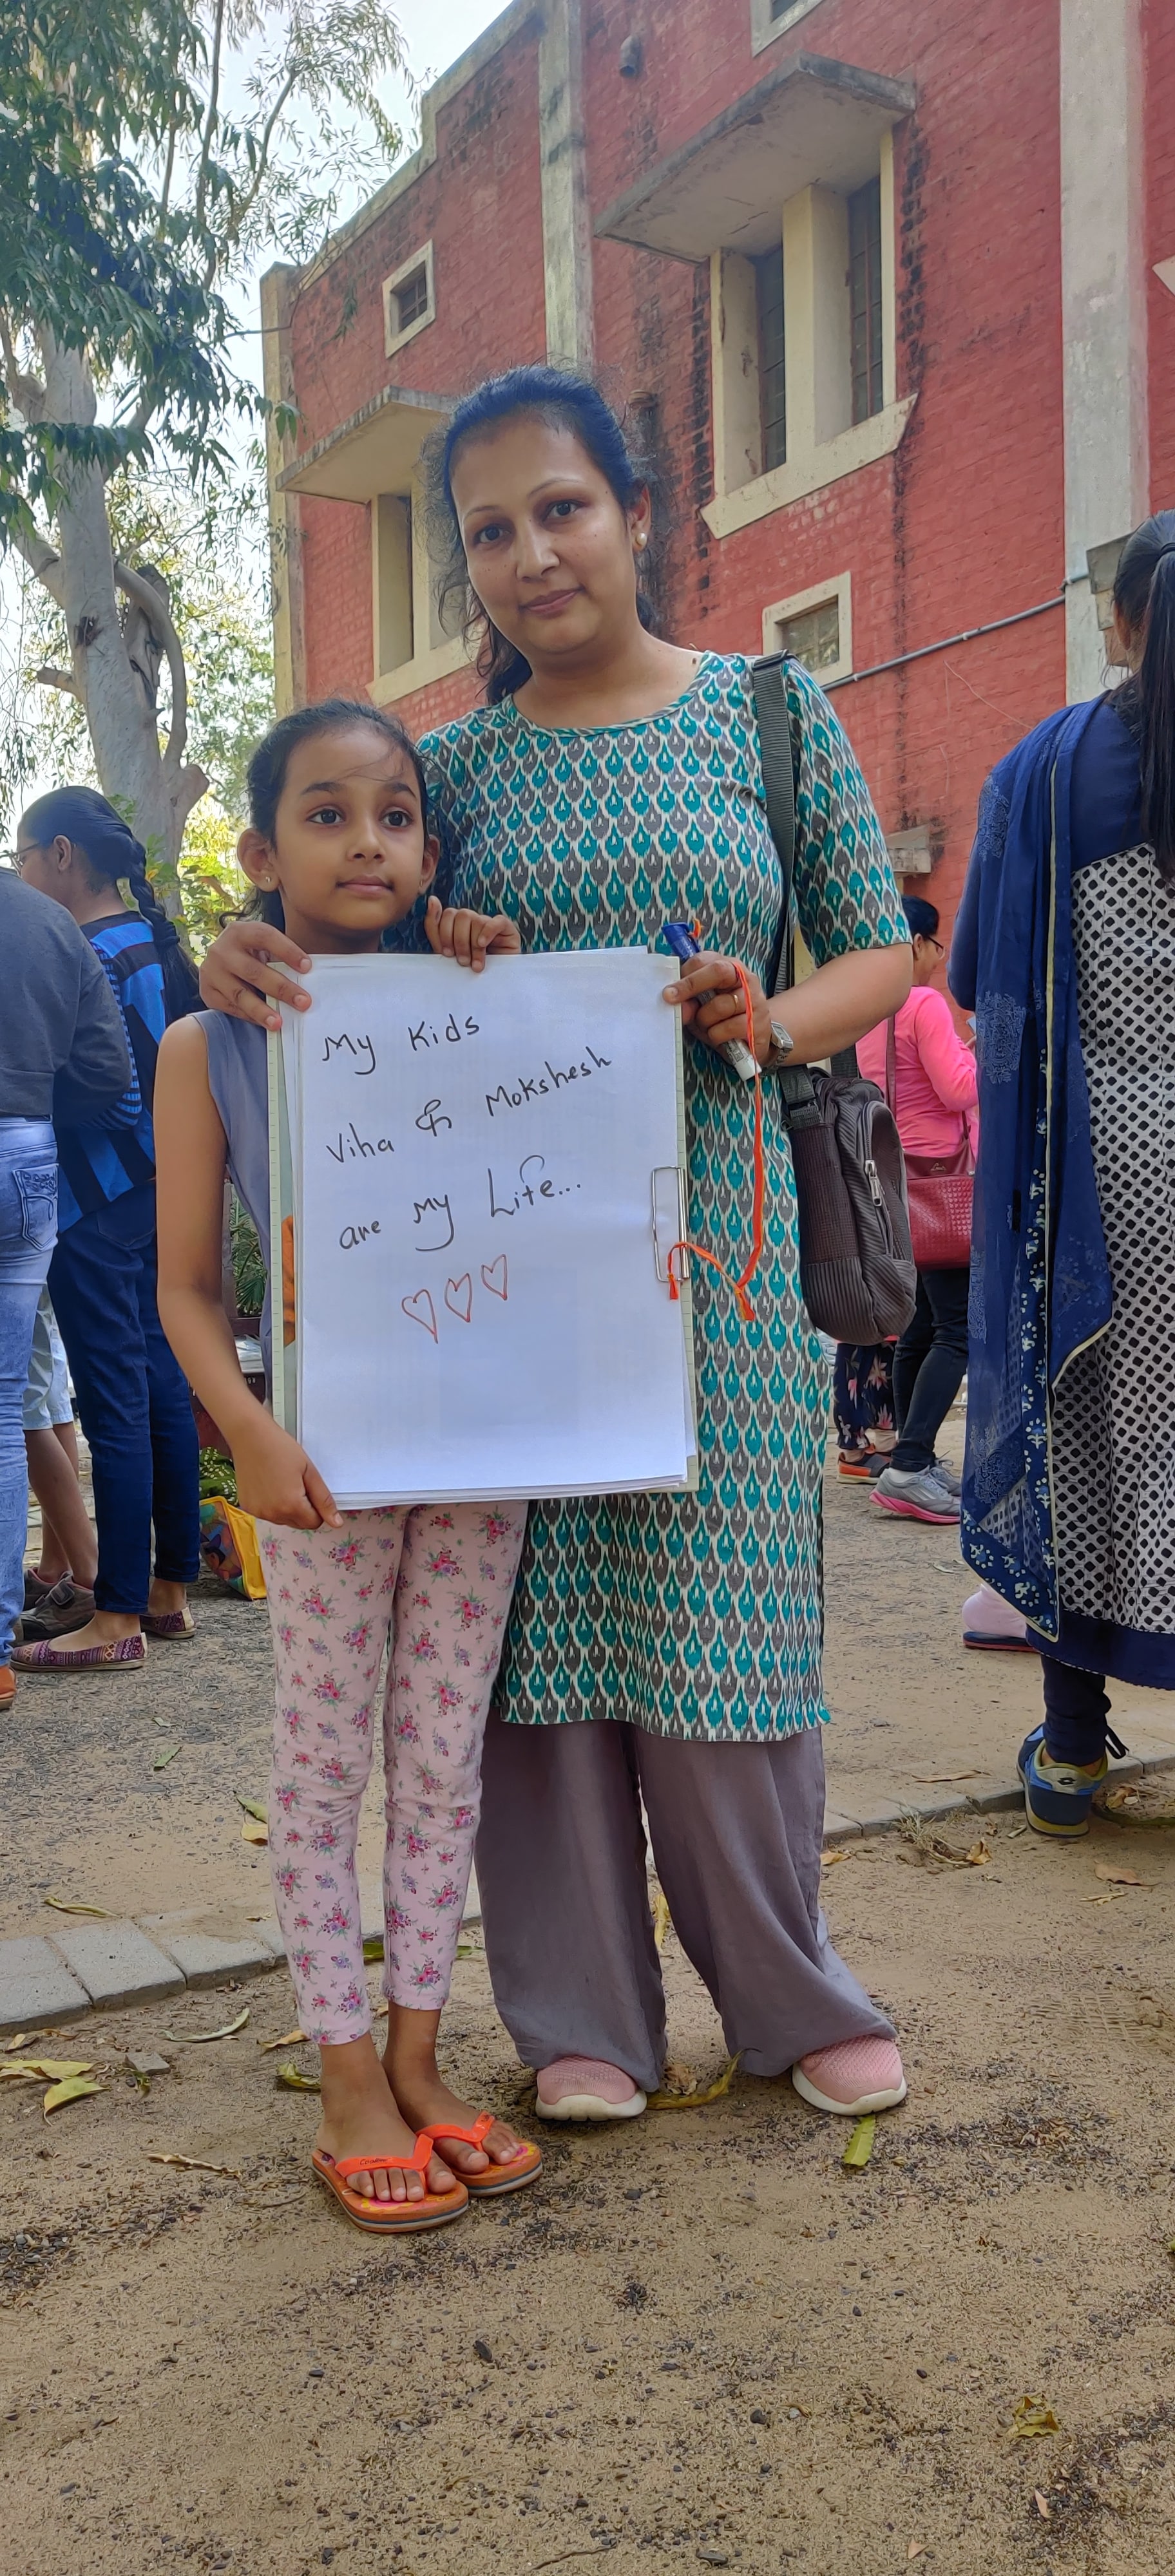 My Kids
Viha & Mokshesh
are My Life...